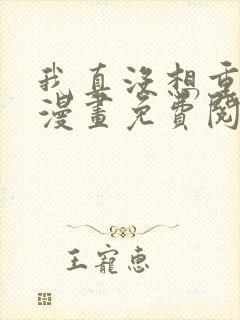 我真没想重
漫畫免費閱
王寵惠